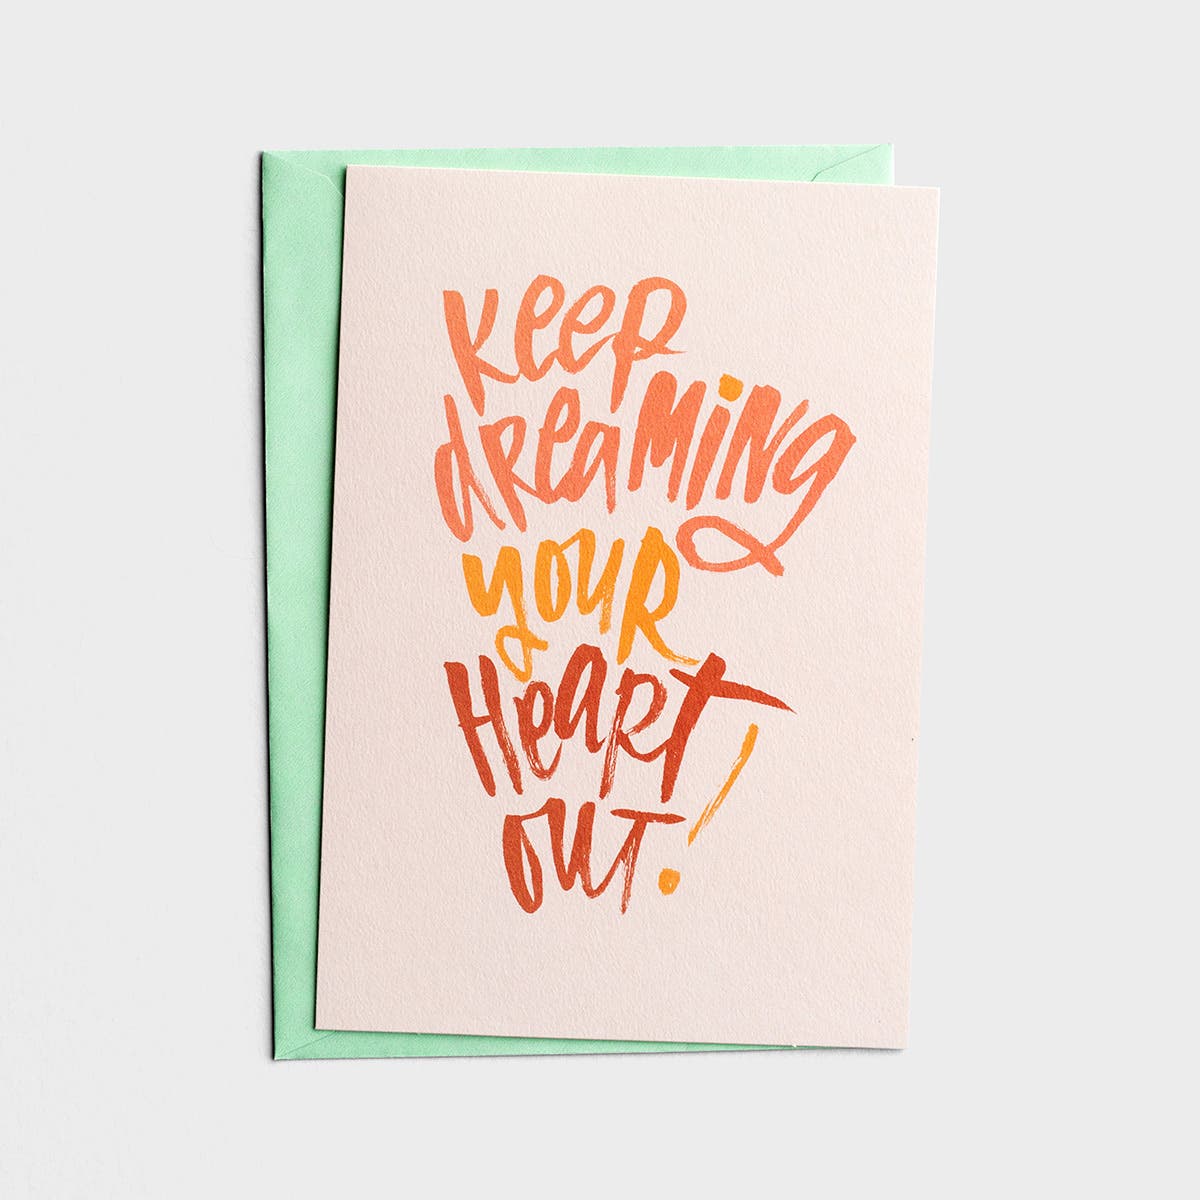 Keep
dreaming
your
Heart
out!